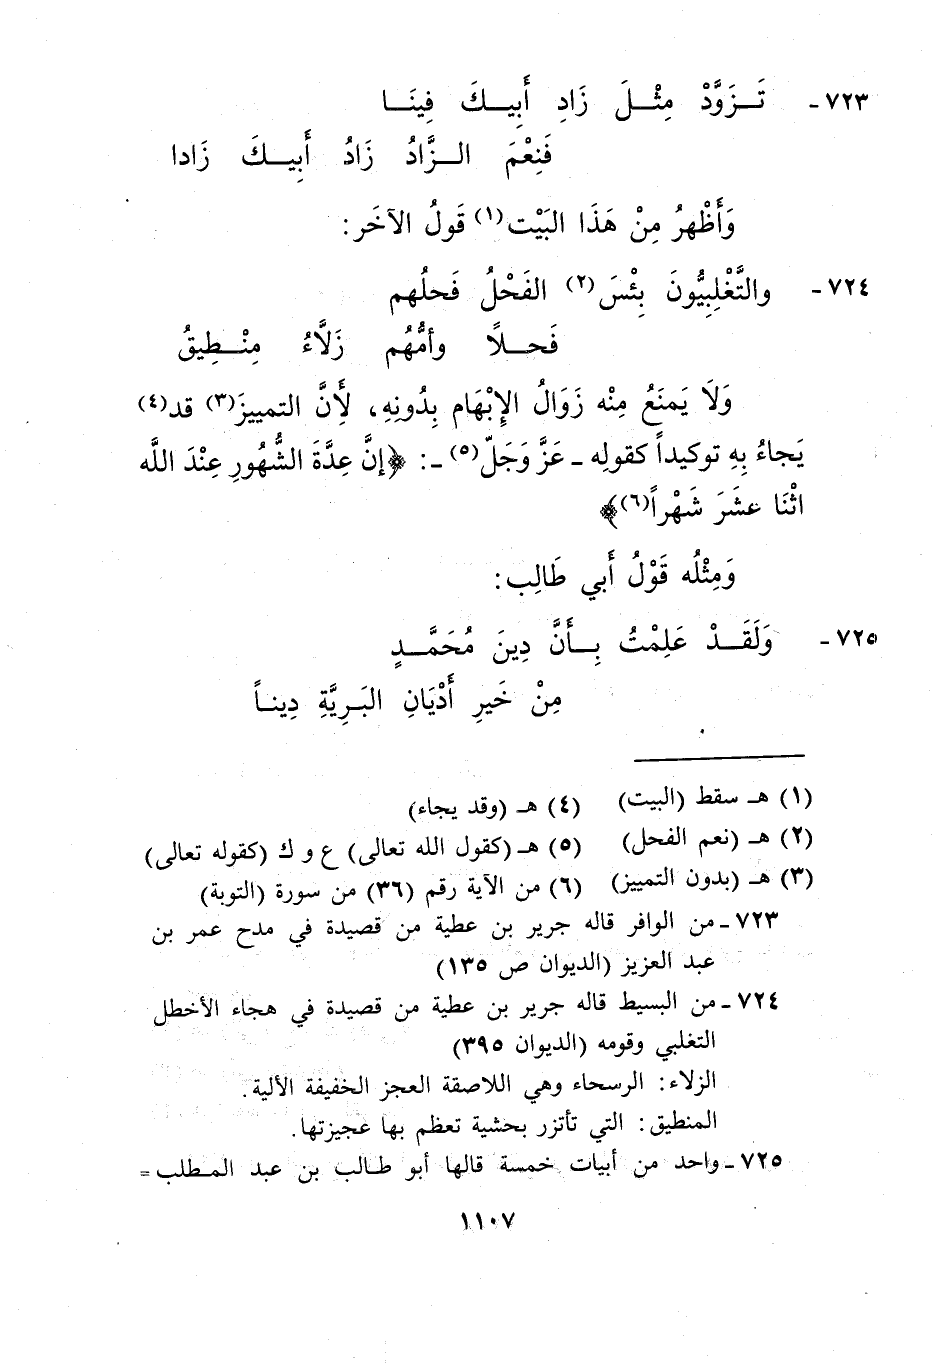 ٧٢٣- تَـزَوَّدْ مِثْـلَ زَادِ أَبِيـكَ فِينَـا
فَنِعْمَ الـزَّادُ زَادُ أَبِيـكَ زَادا
وَأَظْهرُ مِنْ هَذَا البَيْت(١) قَولُ الآخَر:
٧٢٤- والتَّغْلِبِيُّونَ بِئْسَ(٢) الفَحْلُ فَحلُهم
فَحـلاً وأمُّهُم زَلَّاءُ مِنْـطِيقُ
وَلَا يَمنَعُ مِنْه زَوَالُ الإِبْهَام بِدُونِهِ، لِأَنَّ التمييزَ(٣) قد(٤)
يَجاءُ بِهِ توكيداً كقولِه - عَزَّ وَجَلّ(٥) -: ﴿إنَّ عِدَّةَ الشُّهُورِ عِنْدَ اللَّه
اثْنَا عشَرَ شَهْراً(٦)﴾
وَمِثْلُه قَوْلُ أَبي طَالِب:
٧٢٥- وَلَقَـدْ عَلِمْتُ بِـأَنَّ دِينَ مُحَمَّـدٍ
مِنْ خَيرِ أَدْيَانِ البَـرِيَّةِ دِينـاً
(١) هـ سقط (البيت) (٤) هـ (وقد يجاء)
(٢) هـ (نعم الفحل) (٥) هـ (كقول الله تعالى) ع و ك (كقوله تعالى)
(٣) هـ (بدون التمييز) (٦) من الآية رقم (٣٦) من سورة (التوبة)
٧٢٣- من الوافر قاله جرير بن عطية من قصيدة في مدح عمر بن
عبد العزيز (الديوان ص ١٣٥)
٧٢٤- من البسيط قاله جرير بن عطية من قصيدة في هجاء الأخطل
التغلبي وقومه (الديوان ٣٩٥)
الزلاء: الرسحاء وهي اللاصقة العجز الخفيفة الألية.
المنطيق: التي تأتزر بحشية تعظم بها عجيزتها.
٧٢٥- واحد من أبيات خمسة قالها أبو طـالب بن عبد المـطلب =
١١٠٧